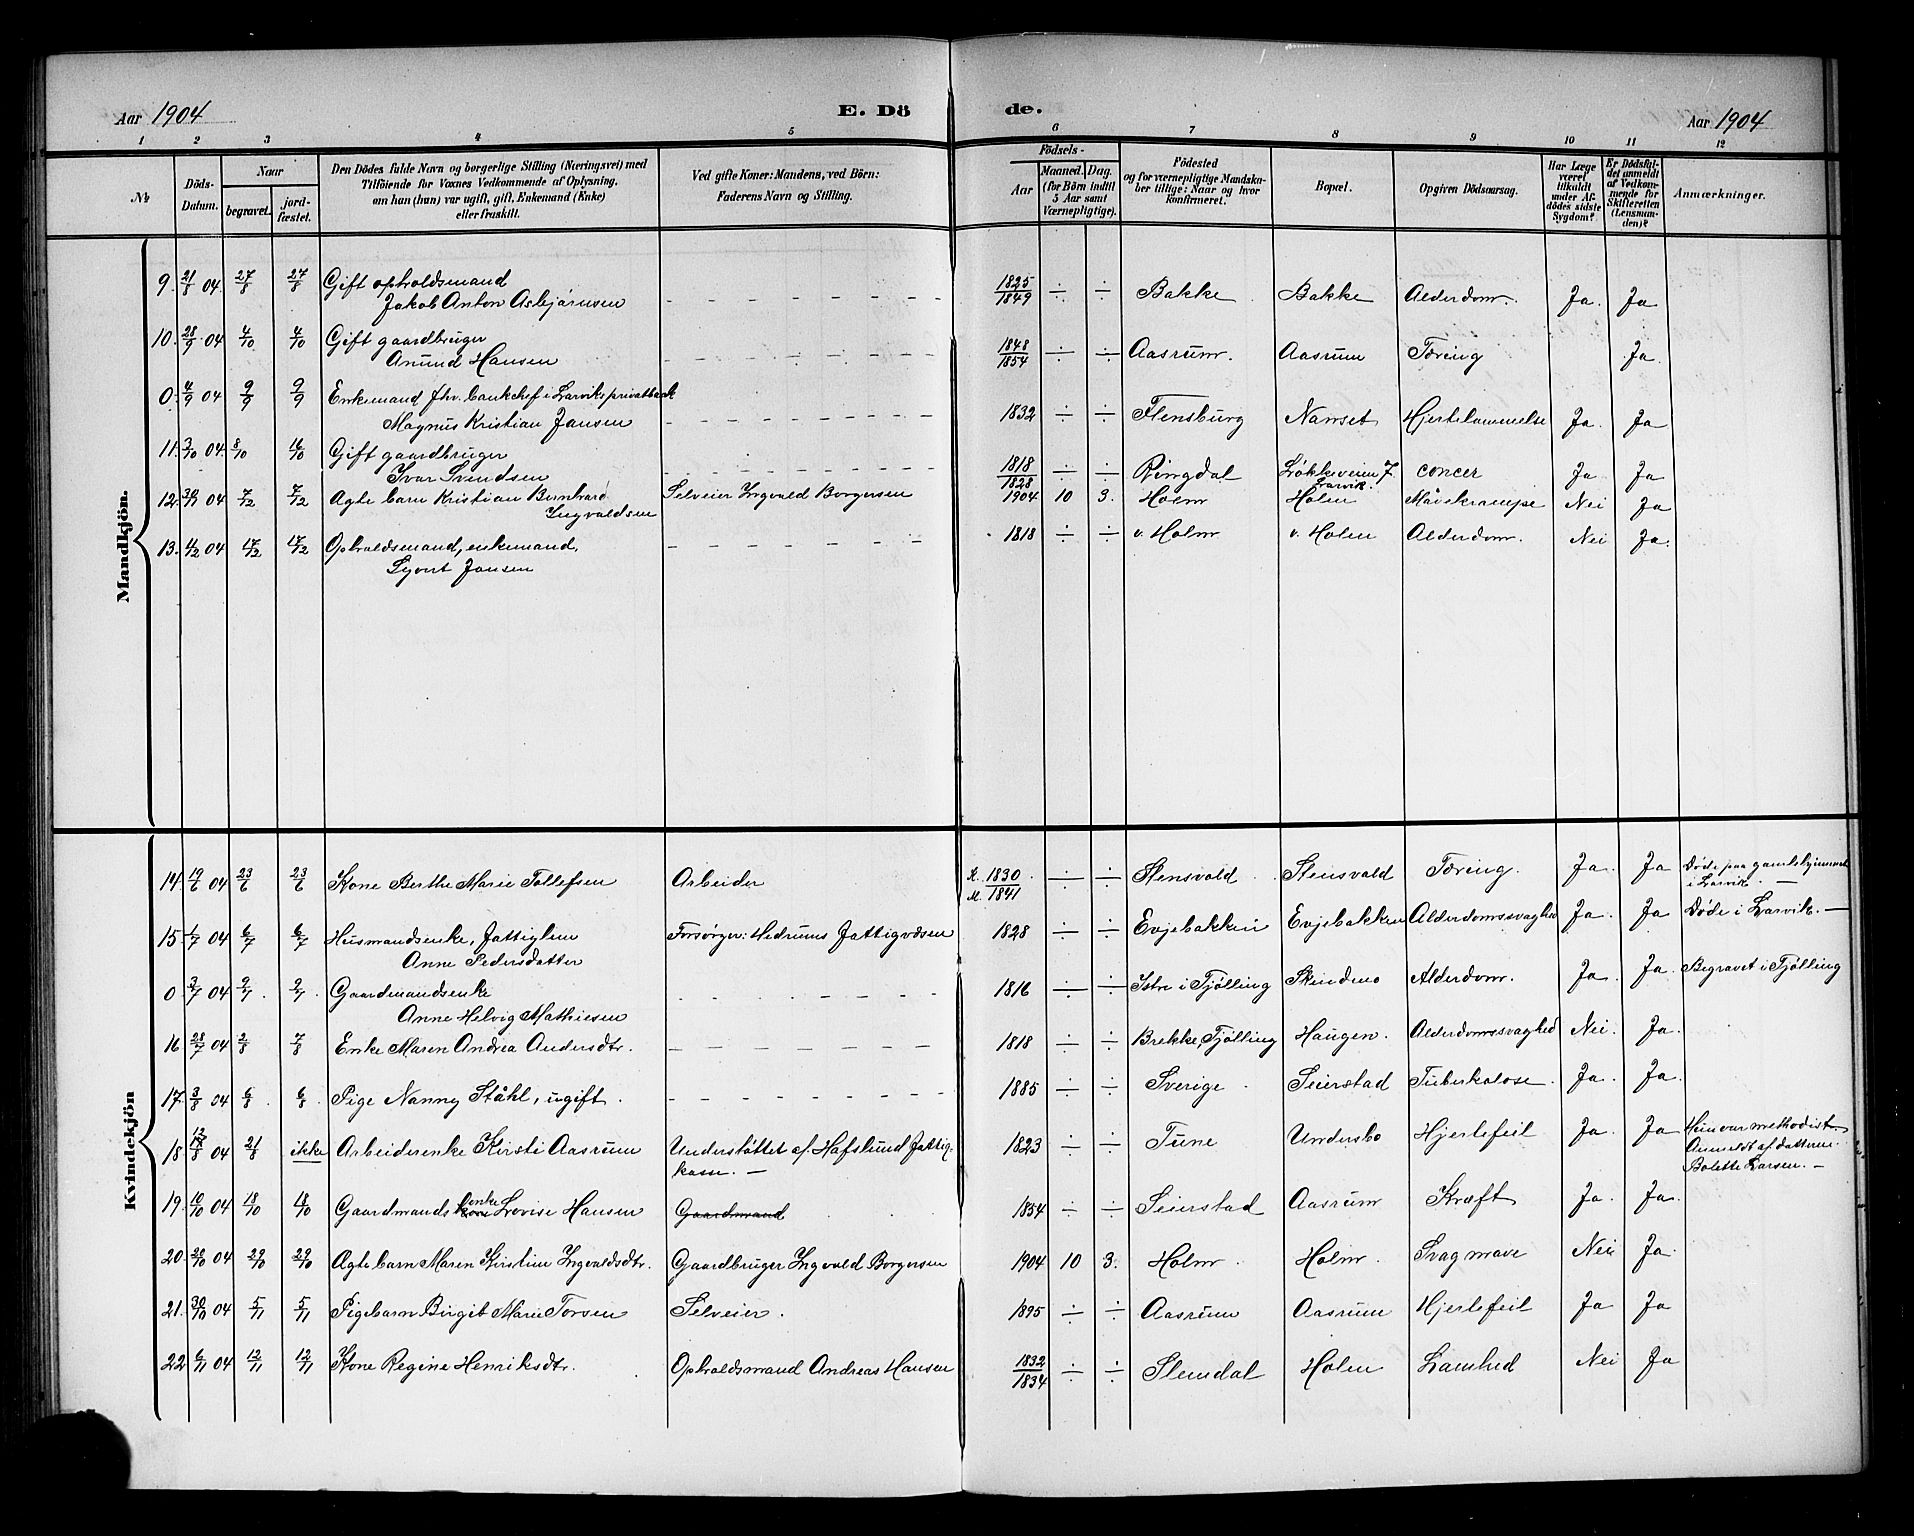 Aar 1904 E. Dö de. Aar 1904
1 2 3 4 5 6 7 8 9 10 11 12
№ Döds-Datum. Naar begravet. jordfæstet. Den Dödes fulde Navn og borgerlige Stilling (Næringsvei) med Tilföiende for Voxnes Vedkommende af Oplysning, om han (hun) var ugift, gift, Enkemand (Enke) eller fraskilt. Ved gifte Koner: Mandens, ved Börn: Faderens Navn og Stilling. Födsels- Aar Maaned. Dag. (for Börn indtil 5 Aar samt Værnepligtige). Födested og for værnepligtige Mandskaber tillige: Naar og hvor konfirmeret. Bopæl. Opgiven Dödsaarsag. Har Læge været tilkaldt under Afdödes sidste Sygdom? Er Dödsfaldet anmeldt af Vedkommende for Skifteretten (Lensmanden)? Anmærkninger.
Mandkjön.
9. 21/8 04. 27/8 27/8 Gift opholdsmand
Jakob Anton Asbjørnsen 1825/1849 ÷ ÷ Bakke Bakke Alderdom. Ja. Ja
10. 28/9 04 4/10 4/10 Gift gaardbruger
Anund Hansen 1848/1854 ÷ ÷ Aasrum. Aasrum Tæring Ja
0. 4/9 04 9/9 9/9 Enkemand fhv. bankchef i Larviks privatbank
Magnus Kristian Jansen 1832 ÷ ÷ Flensburg Nanset Hjertelammelse Ja. Ja
11. 3/10 04. 8/10 16/10 Gift gaardbruger
Ivar Svendsen 1818/1828 ÷ ÷ Ringdal Løkkeveien 7 Larvik. concer Ja Ja
12. 04 7/12 7/12 Ægte barn Kristian Bernhard
Ingvaldsen Selveier Ingvald Borgersen 1904 10 3. Holm Holm Mavekrampe Nei Ja
13. 4/12 04 17/12 17/12 Opholdsmand, enkemand,
Syvert Jansen 1818 ÷ ÷ v. Holm v. Holm Alderdom. Nei Ja.
Kvindekjön
14. 19/6 04 23/6 23/6 Kone Berthe Marie Tollefsen Arbeider K. 1830 M. 1841 ÷ ÷ Stensvold Stensvold Tæring. Ja. Ja Døde paa gamlehjemmet
i Larvik. —
15. 1/7 04 6/7 6/7 Husmandsenke, fattiglem
Anne Pedersdatter Forsørger: Hedrums Fattigvæsen 1828 ÷ ÷ Evjebakken Evjebakken Alderdomssvaghed Ja. Ja Døde i Larvik. —
0 3/7 04 9/7. 9/7. Gaardmandsenke
Anne Helvig Mathiesen 1816 ÷ ÷ Istre i Tjølling Skindmo Alderdom. Ja Ja. Begravet i Tjølling
16 28/7 04 2/8 7/8 Enke Maren Andrea Andersdtr. 1818 ÷ ÷ Brekke, Tjølling Haugen. Alderdomssvaghed Nei. Ja.
17. 3/8 04 6/8. 6/8. Pige Nanny Ståhl, ugift. 1885 ÷ ÷ Sverige Seierstad Tuberkolose. Ja. Ja.
18 04 21/8 ikke Arbeiderenke Kirsti Aasrum Understøttet af Hafslund Fattig-
kasse. — 1823 ÷ ÷ Tune Undersbo Hjertefeil Ja. Ja Hun var methodist.
Anmeldt af datteren
Bolette Larsen. —
19. 10/10 04 18/10 18/10 Gaardmands kone enke Lovise Hansen Gaardmand 1854 ÷ ÷ Seierstad Aasrum Kræft Ja Ja.
20. 20/10 04 29/10 29/10 Ægte barn Maren Kirstine Ingvaldsdtr. Gaardbruger Ingvald Borgersen 1904 10 3. Holm. Holm. Svag mave Nei Ja.
21. 30/10 04 5/11 5/11 Pigebarn Birgit Marie Torsen Selveier. 1895 ÷ ÷ Aasrum Aasrum Hjertefeil Ja Ja
22 6/11 04 12/11 12/11 Kone Regine Henriksdtr. Opholdsmand Andreas Hansen 1832/1834 ÷ ÷ Stemdal Holm Lamhed Nei Ja